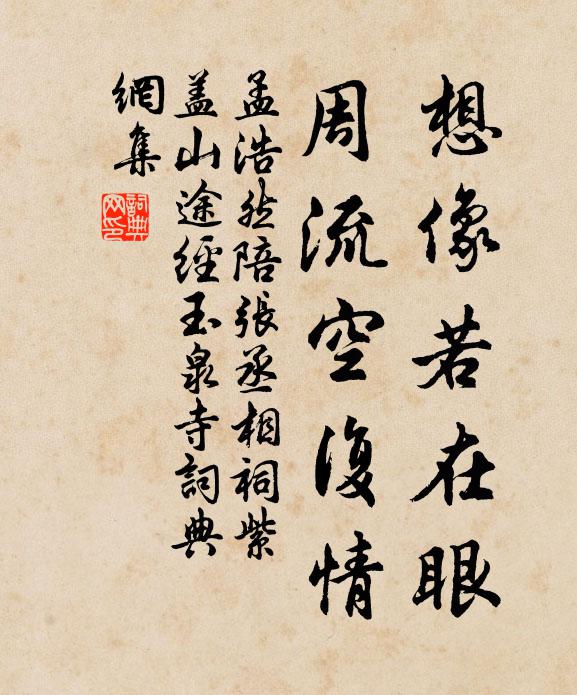 想像若在眼
周流空復情
孟浩然陪張丞相祠紫
盖山途經玉泉寺詞典
網集
詞典
网印